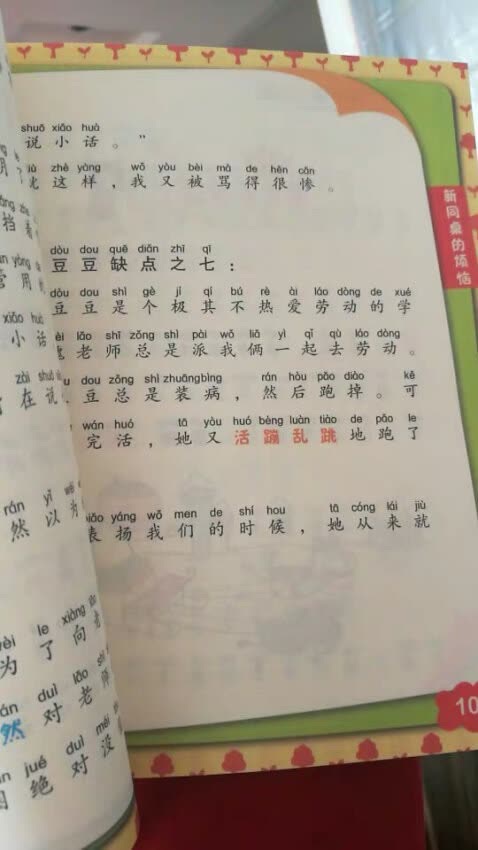 新同桌的烦恼
shuō xiāo huà
说小话。”
zhè yàng, wǒ yòu bèi mà de hěn cǎn
这样，我又被骂得很惨。
dòu dou quē diǎn zhī qī
豆豆缺点之七：
dòu dou shì gè jí qí bú rè ài láo dòng de xué
豆豆是个极其不热爱劳动的学
lǎo shī zǒng shì pài wǒ liǎ yì qǐ qù láo dòng
老师总是派我俩一起去劳动。
dou zǒng shì zhuāng bìng, rán hòu pǎo diào. kě
豆总是装病，然后跑掉。可
wán huó, tā yòu huó bèng luàn tiào de pǎo le
完活，她又活蹦乱跳地跑了
biǎo yáng wǒ men de shí hou, tā cóng lái jiù
表扬我们的时候，她从来就
10
xiǎo huà
小话
zài shuō
在说
rán yǐ wéi
然以为
wèi le xiàng
为了向
duì lǎo shī
然对老师
jué duì méi
绝对没